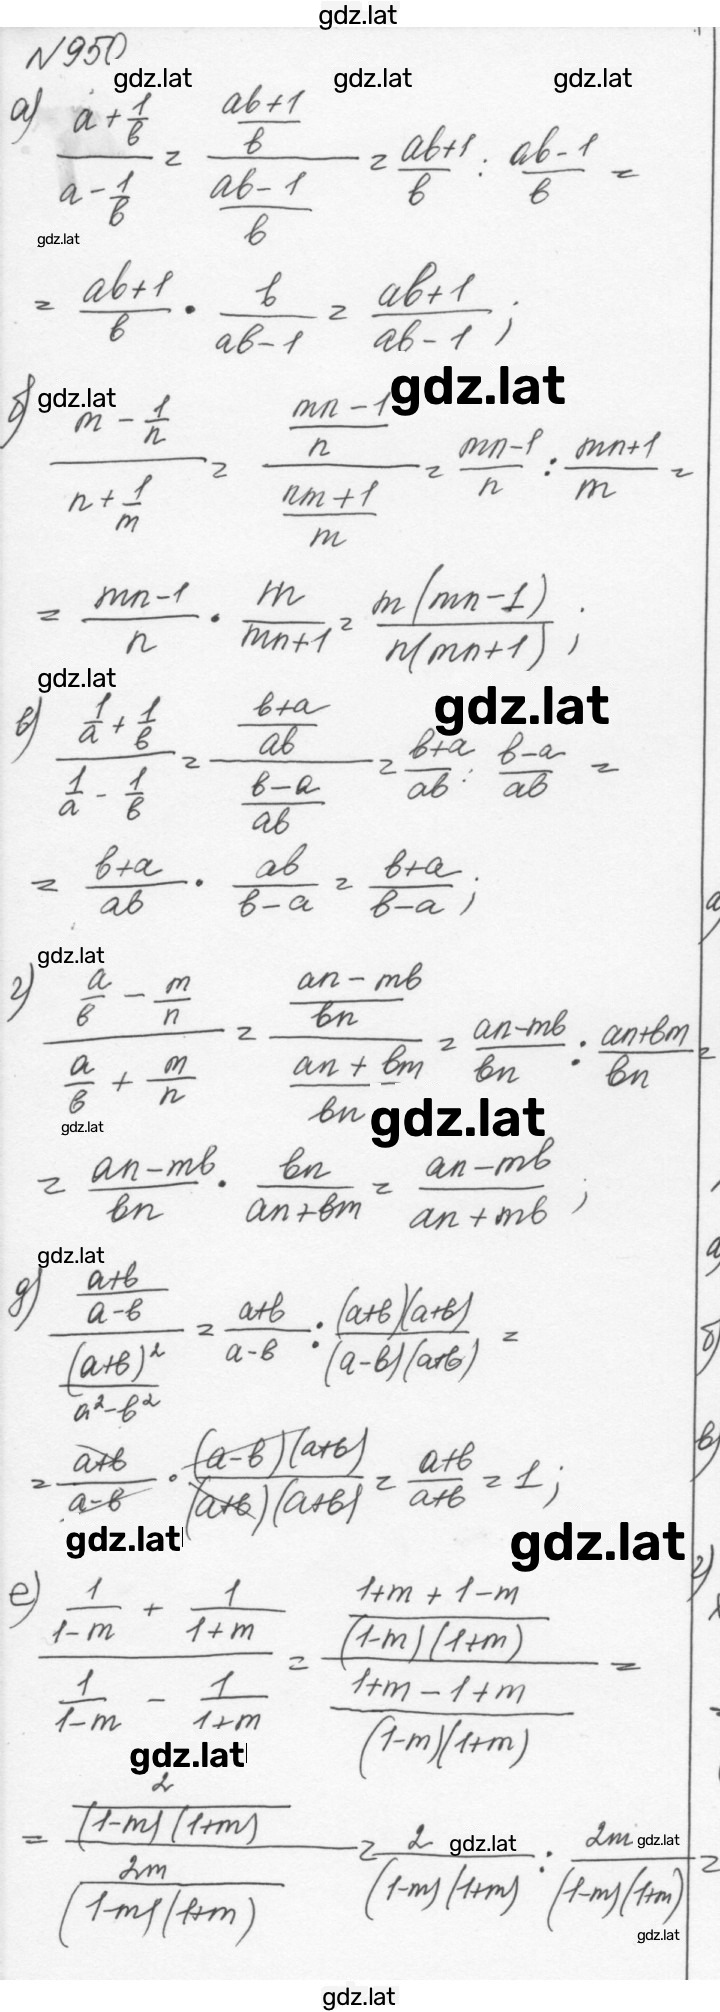 gdz.lat
N950
gdz.lat gdz.lat gdz.lat
а) (a + 1/b)/(a - 1/b) = ((ab+1)/b)/((ab-1)/b) = (ab+1)/b : (ab-1)/b =
gdz.lat
= (ab+1)/b · b/(ab-1) = (ab+1)/(ab-1) ;
gdz.lat gdz.lat
б) (m - 1/n)/(n + 1/m) = ((mn-1)/n)/((nm+1)/m) = (mn-1)/n : (mn+1)/m =
= (mn-1)/n · m/(mn+1) = m(mn-1)/n(mn+1) ;
gdz.lat gdz.lat
в) (1/a + 1/b)/(1/a - 1/b) = ((b+a)/ab)/((b-a)/ab) = (b+a)/ab : (b-a)/ab =
= (b+a)/ab · ab/(b-a) = (b+a)/(b-a) ;
gdz.lat
г) (a/b - m/n)/(a/b + m/n) = ((an-mb)/bn)/((an+bm)/bn) = (an-mb)/bn : (an+bm)/bn =
gdz.lat gdz.lat
= (an-mb)/bn · bn/(an+bm) = (an-mb)/(an+mb) ;
gdz.lat
д) ((a+b)/(a-b))/((a+b)²/(a²-b²)) = (a+b)/(a-b) : (a+b)(a+b)/(a-b)(a+b) =
= (a+b)/(a-b) · (a-b)(a+b)/(a+b)(a+b) = (a+b)/(a+b) = 1 ;
gdz.lat gdz.lat
е) (1/(1-m) + 1/(1+m))/(1/(1-m) - 1/(1+m)) = ((1+m+1-m)/(1-m)(1+m))/((1+m-1+m)/(1-m)(1+m)) =
gdz.lat
= (2/(1-m)(1+m))/(2m/(1-m)(1+m)) = 2/(1-m)(1+m) : 2m/(1-m)(1+m) =
gdz.lat gdz.lat
gdz.lat
gdz.lat